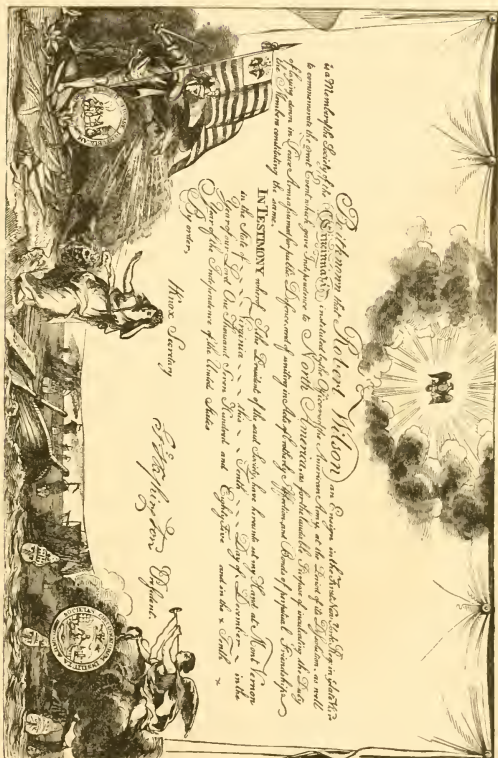 Be it known that Robert Wilson an Ensign in the First New York Reg in State
is a Member of the Society of the Cincinnati; instituted by the Officers of the American Army, at the Period of its Dissolution, as well
to commemorate the great Event which gave Independence to North America, as for the laudable Purpose of inculcating the Duty
of laying down in Peace Arms assumed for public Defence, and of uniting in Acts of brotherly Affection, and Bonds of perpetual Friendship,
the Members constituting the same.
IN TESTIMONY whereof I, the President of the said Society, have hereunto set my Hand at Mount Vernon
in the State of Virginia this Tenth Day of December in the
Year of our Lord One Thousand Seven Hundred and Eighty Five and in the Tenth
Year of the Independence of the United States.
By order,
Knox Secretary
G:Washington President.